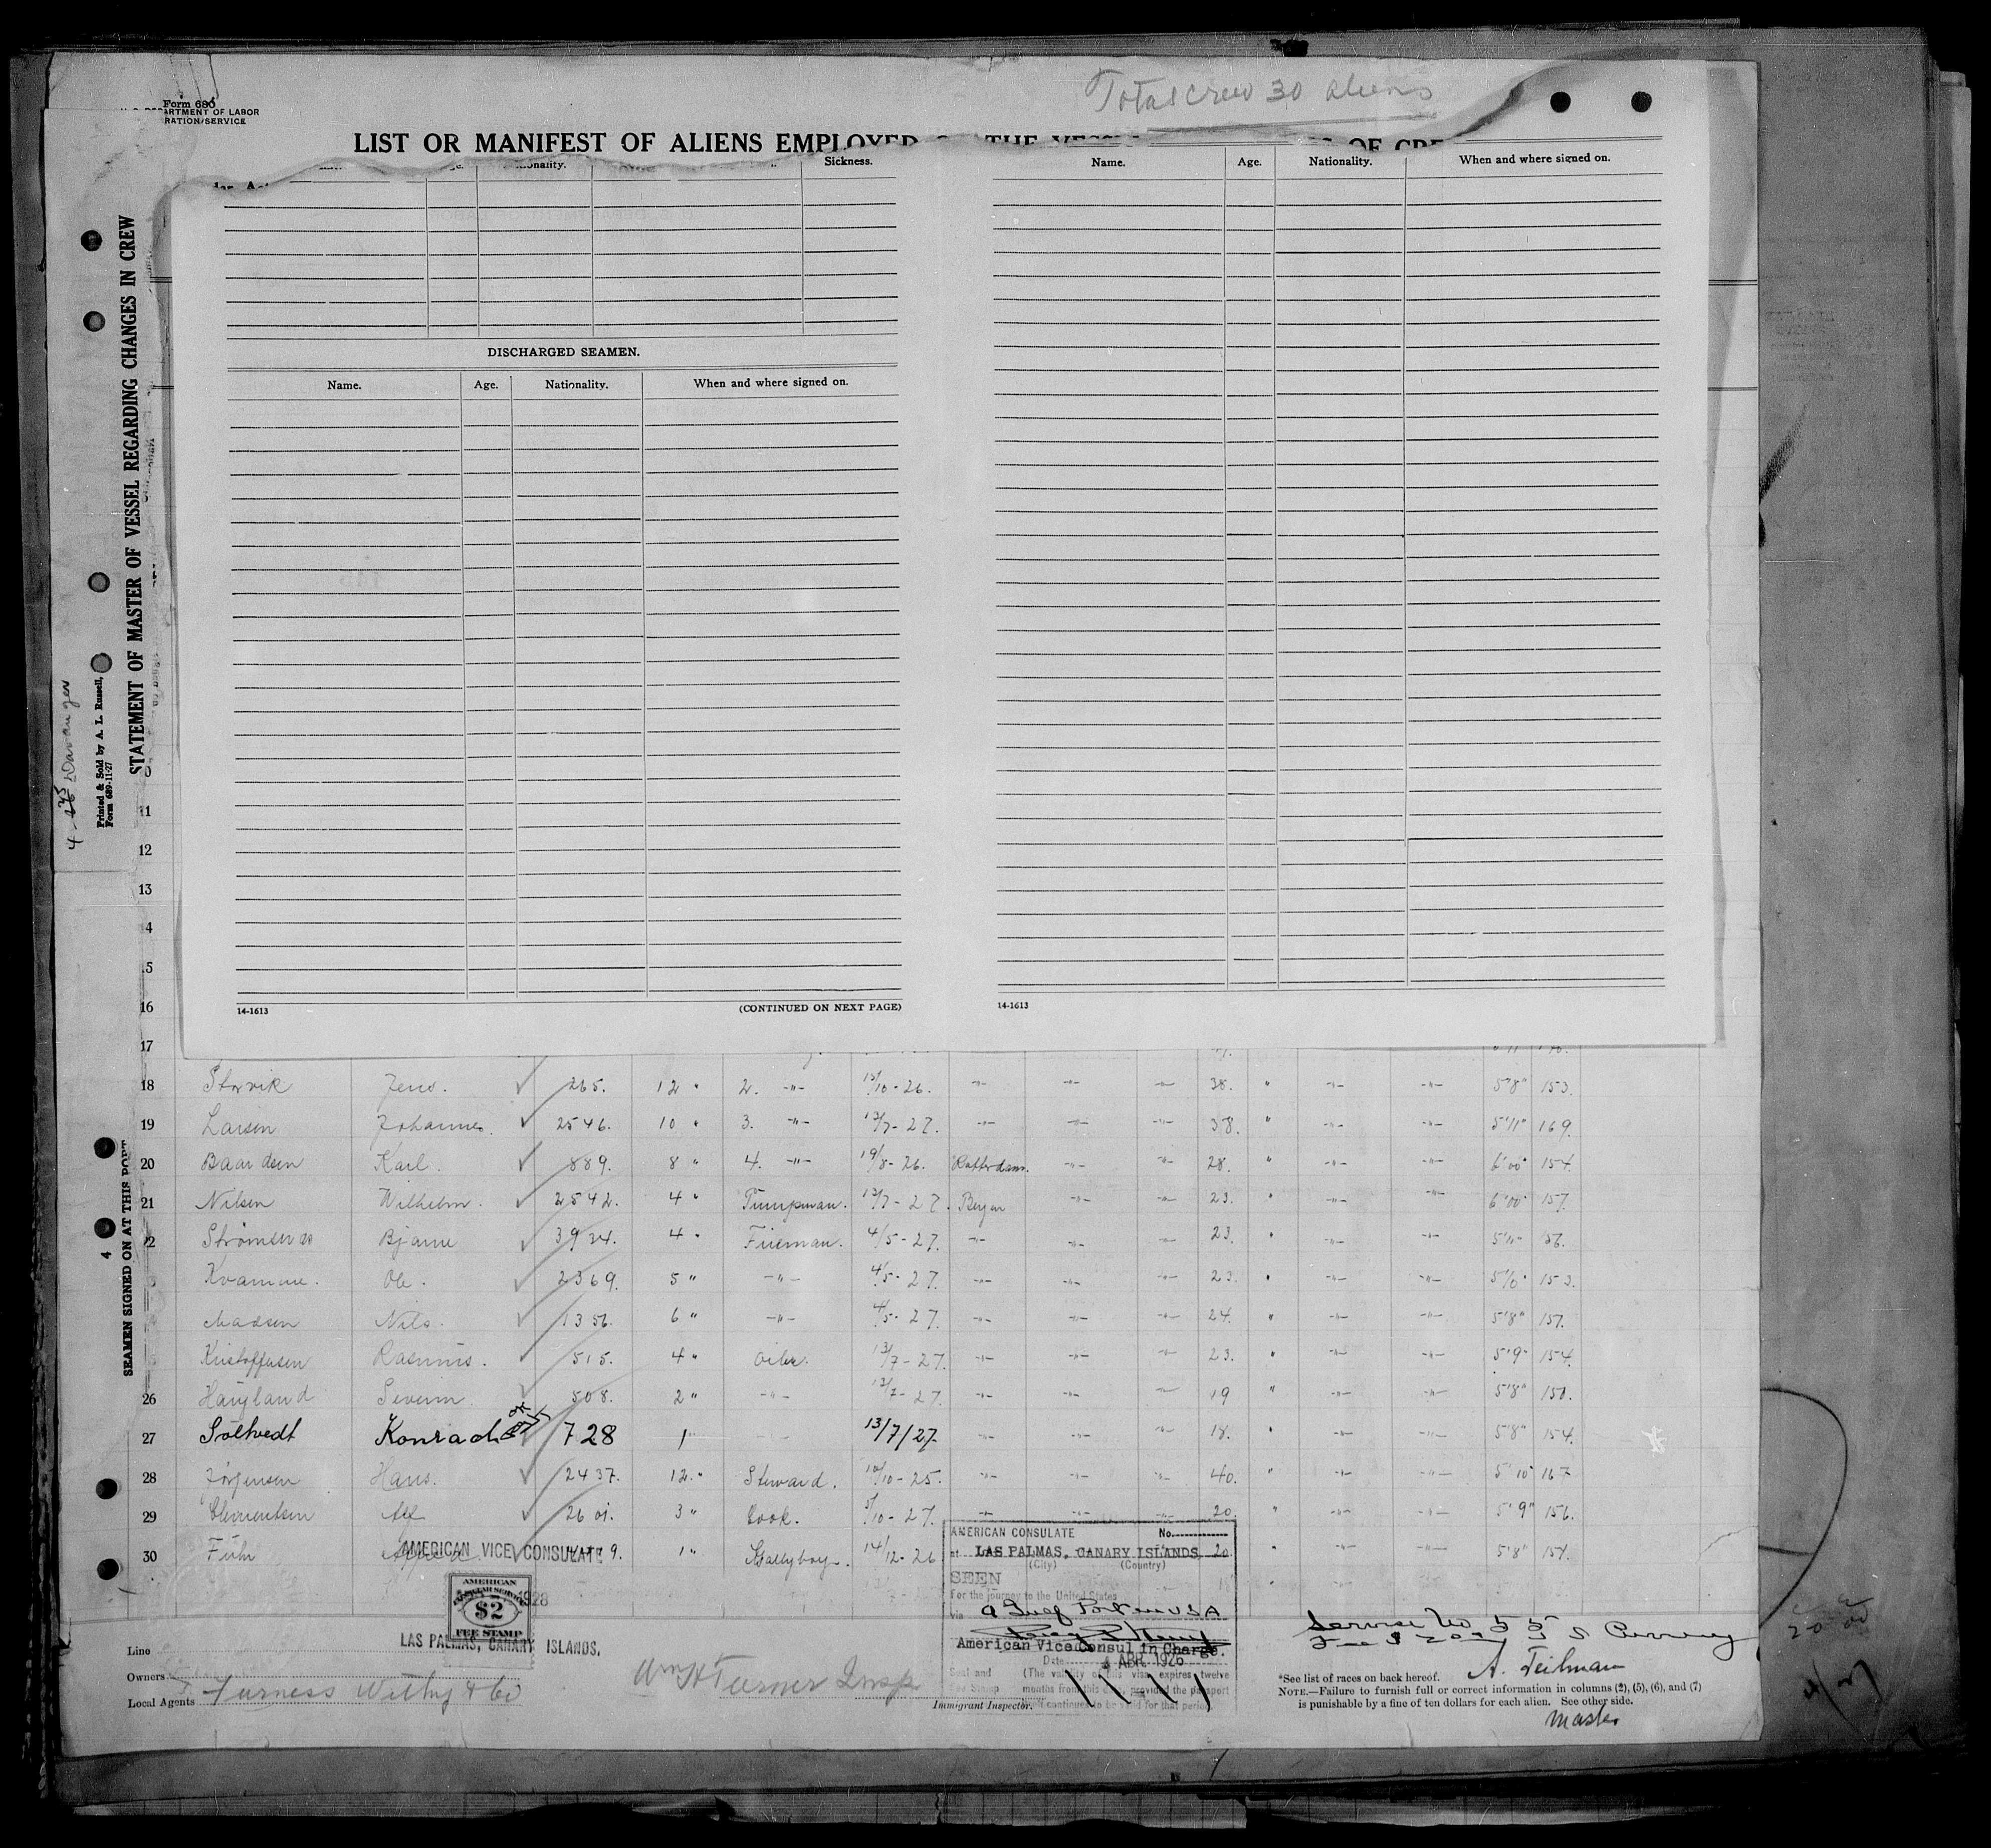 Total crew 30 aliens
Form 680
U. S. DEPARTMENT OF LABOR
RATION SERVICE
LIST OR MANIFEST OF ALIENS EMPLOYED THE OF CRE
STATEMENT OF MASTER OF VESSEL REGARDING CHANGES IN CREW
Printed & Sold by A. L. Russell,
Form 689-11-27
SEAMEN SIGNED ON AT THIS PORT
4
Sickness.
DISCHARGED SEAMEN.
Name. Age. Nationality. When and where signed on.
14-1613 (CONTINUED ON NEXT PAGE)
Name. Age. Nationality. When and where signed on.
14-1613
11
12
13
14
15
16
17
18 Storvik Jens. 265. 12 " 2. -"- 13/10-26. -"- -"- -"- 38. " -"- -"- 5'8" 153.
19 Larsen Johannes. 2546. 10 " 3. -"- 13/7-27. -"- -"- -"- 38. " -"- -"- 5'11" 169.
20 Baardsen Karl. 889. 8 " 4. -"- 19/8-26. Rotterdam. -"- -"- 28. " -"- -"- 6'00" 154.
21 Nilsen Wilhelm. 2542. 4 " Pumpman. 13/7-27. Bergen -"- -"- 23. -"- -"- 6'00" 157.
22 Strømsnes Bjarne 3934. 4 " Fireman. 4/5-27. -"- -"- -"- 23. " -"- -"- 5'11" 156.
Kvamme. Ole. 2369. 5 " -"- 4/5-27. -"- -"- -"- 23. " -"- -"- 153.
Madsen Nils. 1356. 6 " -"- 4/5-27. -"- -"- -"- 24. " -"- -"- 5'8" 157.
Kristoffersen Rasmus. 515. 4 " Oiler. 13/7-27. -"- -"- -"- 23. " -"- -"- 5'9" 154.
26 Haugland Severin 508. 2 " -"- 13/7-27. -"- -"- -"- 19 " -"- -"- 5'8" 150.
27 Soltvedt Konrad 728 1 13/7/27 -"- -"- -"- 18. " -"- -"- 5'8" 154.
28 Jørgensen Hans. 2437. 12. " Steward. 10/10-25. -"- -"- -"- 40. " -"- -"- 5'10" 167
29 Clementsen Alf 2601. 3 " Cook. 5/10-27. -"- -"- -"- 20. " -"- -"- 5'9" 156.
30 Führ 1 " Galleyboy. 14/12-26 20. " -"- -"- 5'8" 154.
AMERICAN VICE CONSULATE
1928
AMERICAN
CONSULAR SERVICE
$2
FEE STAMP
LAS PALMAS, CANARY ISLANDS.
AMERICAN CONSULATE No.
at LAS PALMAS, CANARY ISLANDS
(City) (Country)
SEEN
For the journey to the United States
via a Gulf Port in USA
American Vice Consul in Charge.
Date 4 APR. 1928
Seal and Fee Stamp (The validity of this visa expires twelve
months from this date, provided the passport
continues to be valid for that period
Line
Owners
Local Agents Furness Withy & Co
Wm H Turner Insp
Immigrant Inspector.
Service No 55
*See list of races on back hereof.
A. Teilman
NOTE.—Failure to furnish full or correct information in columns (2), (5), (6), and (7)
is punishable by a fine of ten dollars for each alien. See other side.
Master